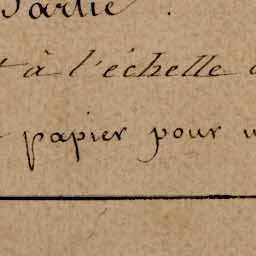 Partie.
à l'échelle
papier pour